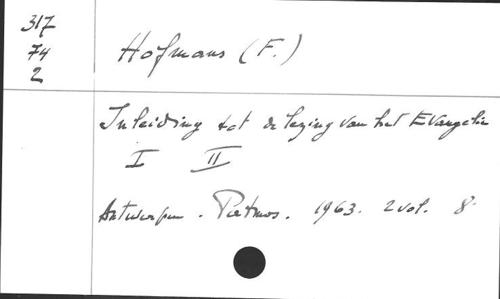 317
74
2
Hofmans (F.)
Inleiding tot de lezing van het Evangelie
I II
Antwerpen. Patmos. 1963. 2 vol. 8°